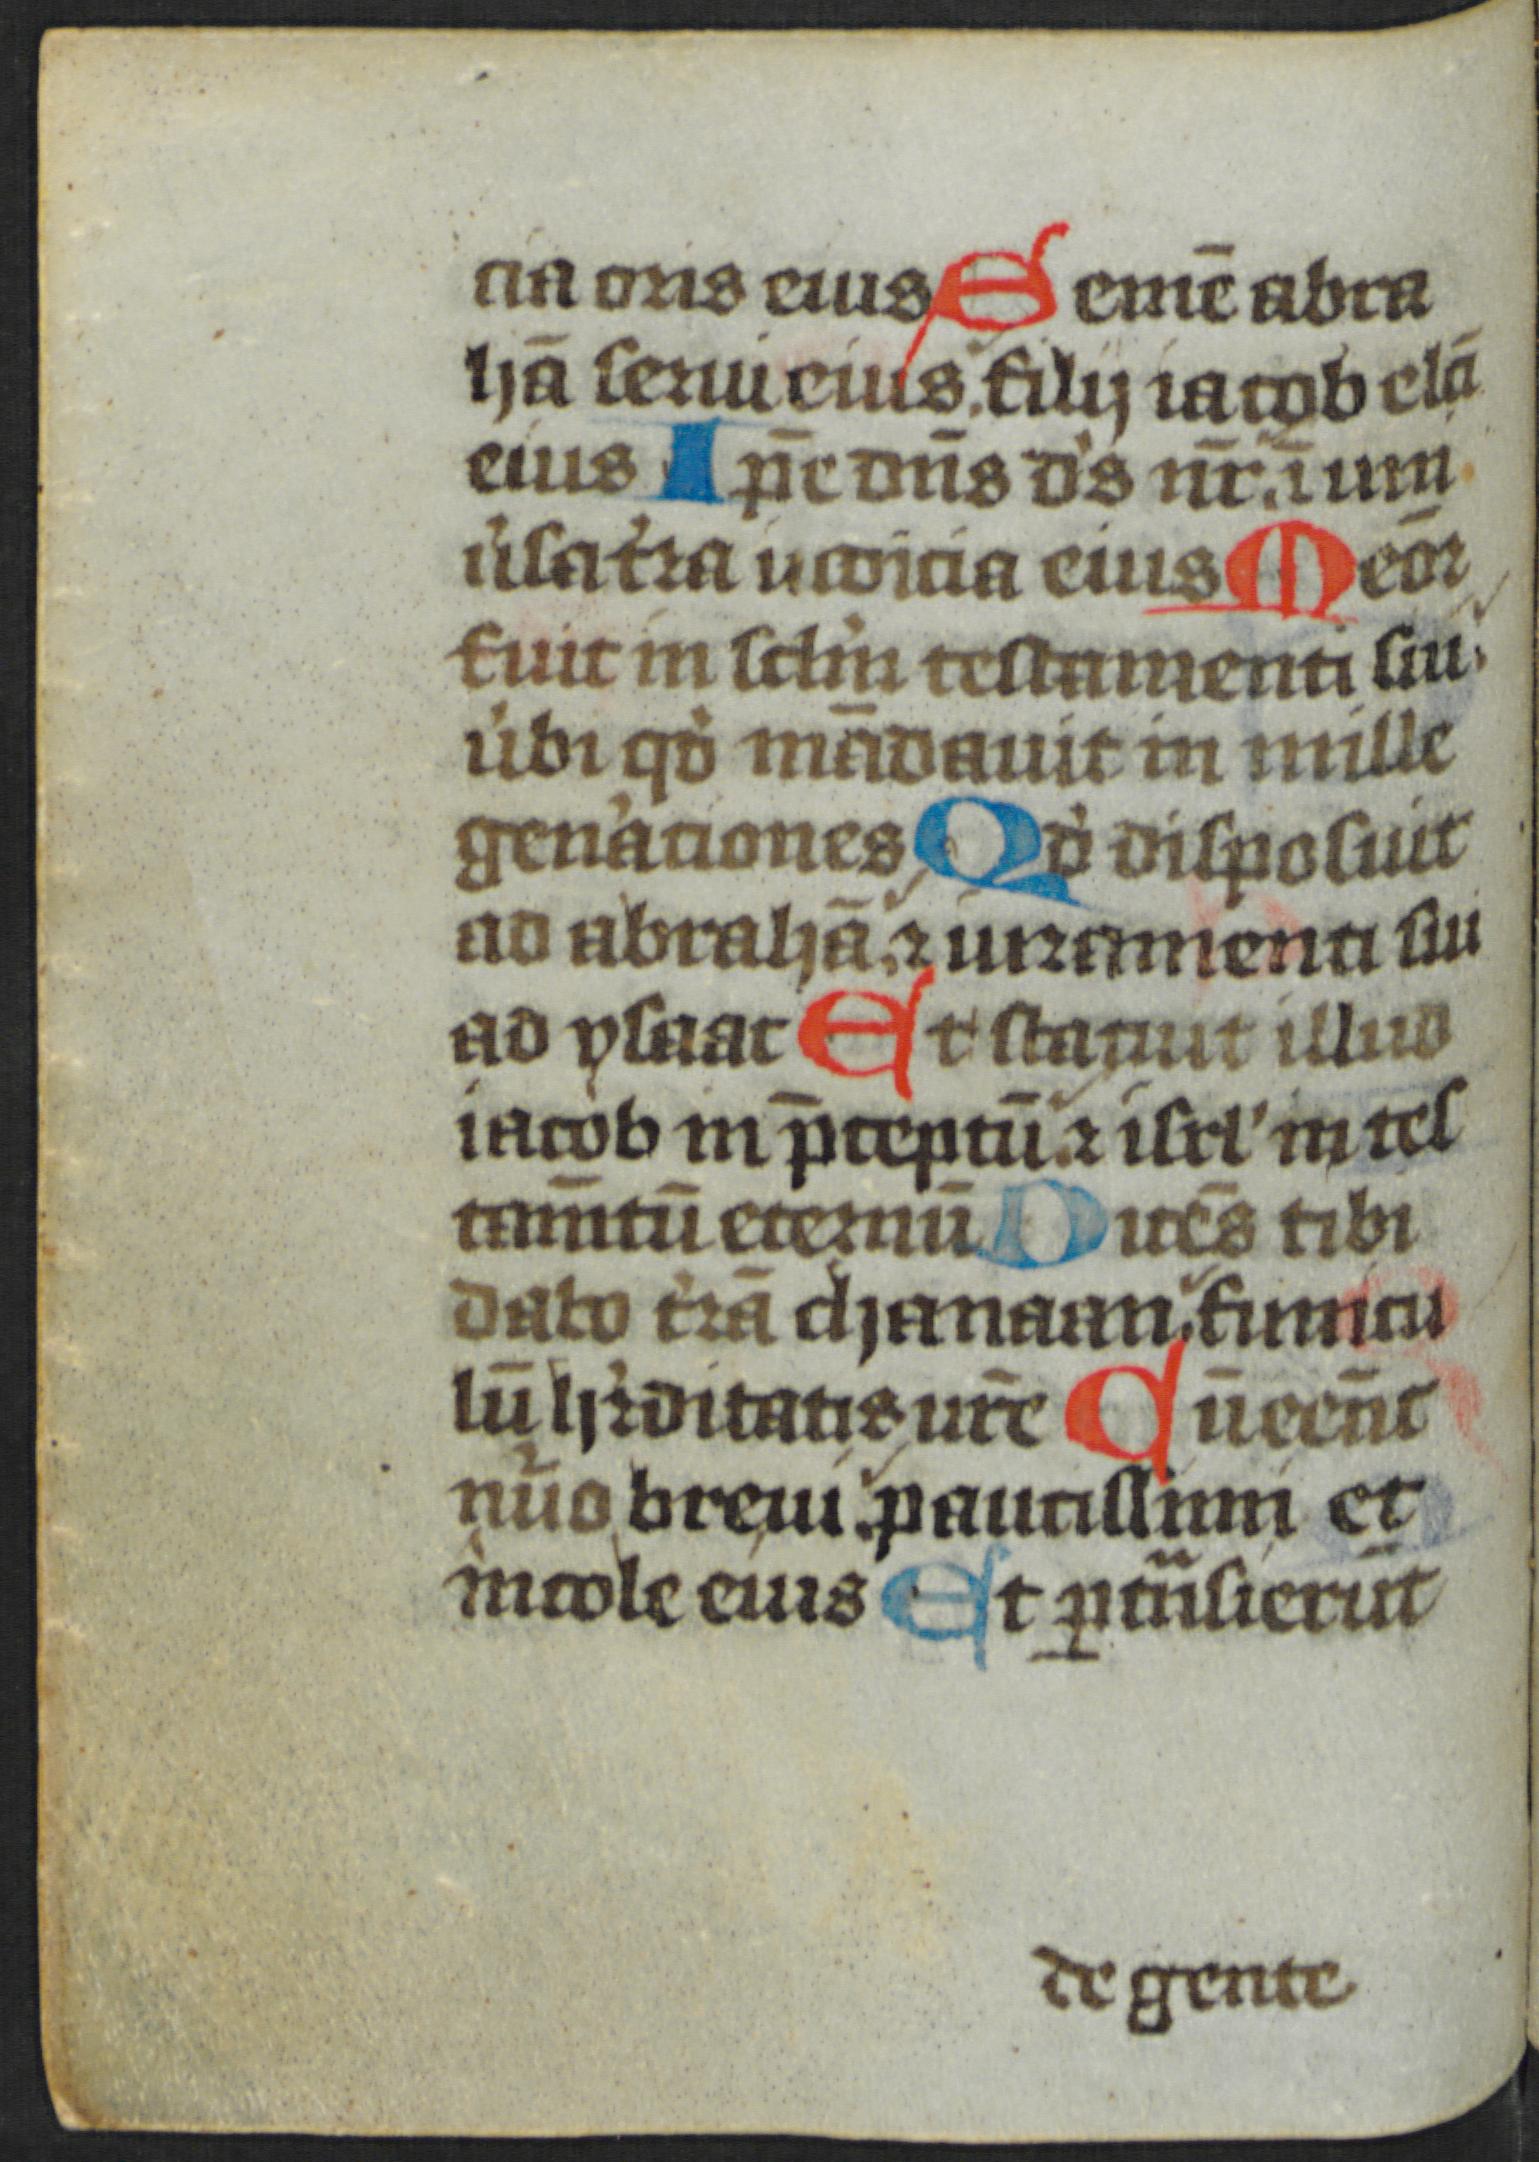 cia oris eius Semē abra
hā serui eius. filij iacob elcī
eius Ip̄e dn̄s d's nr̄. ī uni
u'sa t'ra iudicia eius Meōr
fuit in sclm̄ testamenti sui.
u'bi qd' mādauit in mille
gen'ationes Qd' disposuit
ad abrahā. ⁊ iuramenti sui
ad ysaac Et statuit illud
iacob in p̄ceptū. ⁊ isrl' in tes
tam̄tū eternū Dicēs tibi
dabo t'rā chanaan. funicu
lū h'rditatis ur̄e Cū eēnt
nūo breui. paucissimi et
incole eius Et ꝑtn̄sierūt
de gente